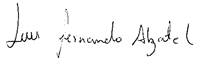 Luis fernando Alzate L